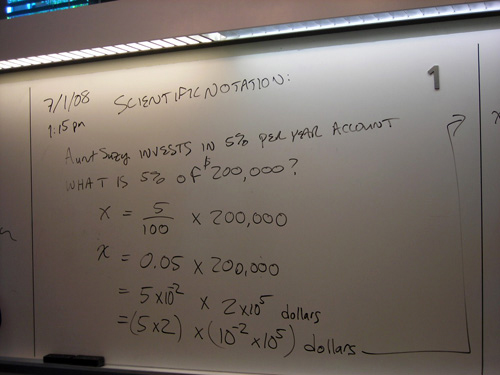 7/1/08 SCIENTIFIC NOTATION: 1
1:15 pm
Aunt Suzy INVESTS IN 5% PER YEAR ACCOUNT
WHAT IS 5% of $200,000?
x = 5/100 x 200,000
x = 0.05 x 200,000
= 5 x 10⁻² x 2 x 10⁵ dollars
= (5 x 2) x (10⁻² x 10⁵) dollars